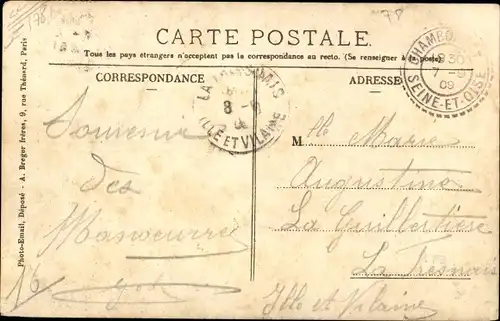 78
CARTE POSTALE.
Tous les pays étrangers n'acceptent pas la correspondance au recto. (Se renseigner à la poste)
CORRESPONDANCE
ADRESSE
SEINE-ET-OISE
7 -9
09
8 -9
ILLE ET VILAINE
Souvenir
des
Manoeuvre
16
Mlle Marie
Augustine
La Guillertière
La Fresnais
Ille et Vilaine
Photo-Email, Déposé - A. Breger frères, 9, rue Thénard, Paris